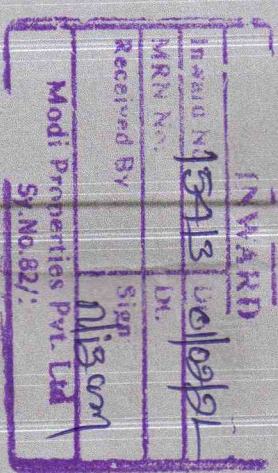 INWARD
Inward No. 15413 Dt.
MRN No. Dt.
Received By Sign
Nizam
Modi Properties Pvt. Ltd
Sy.No.82/: